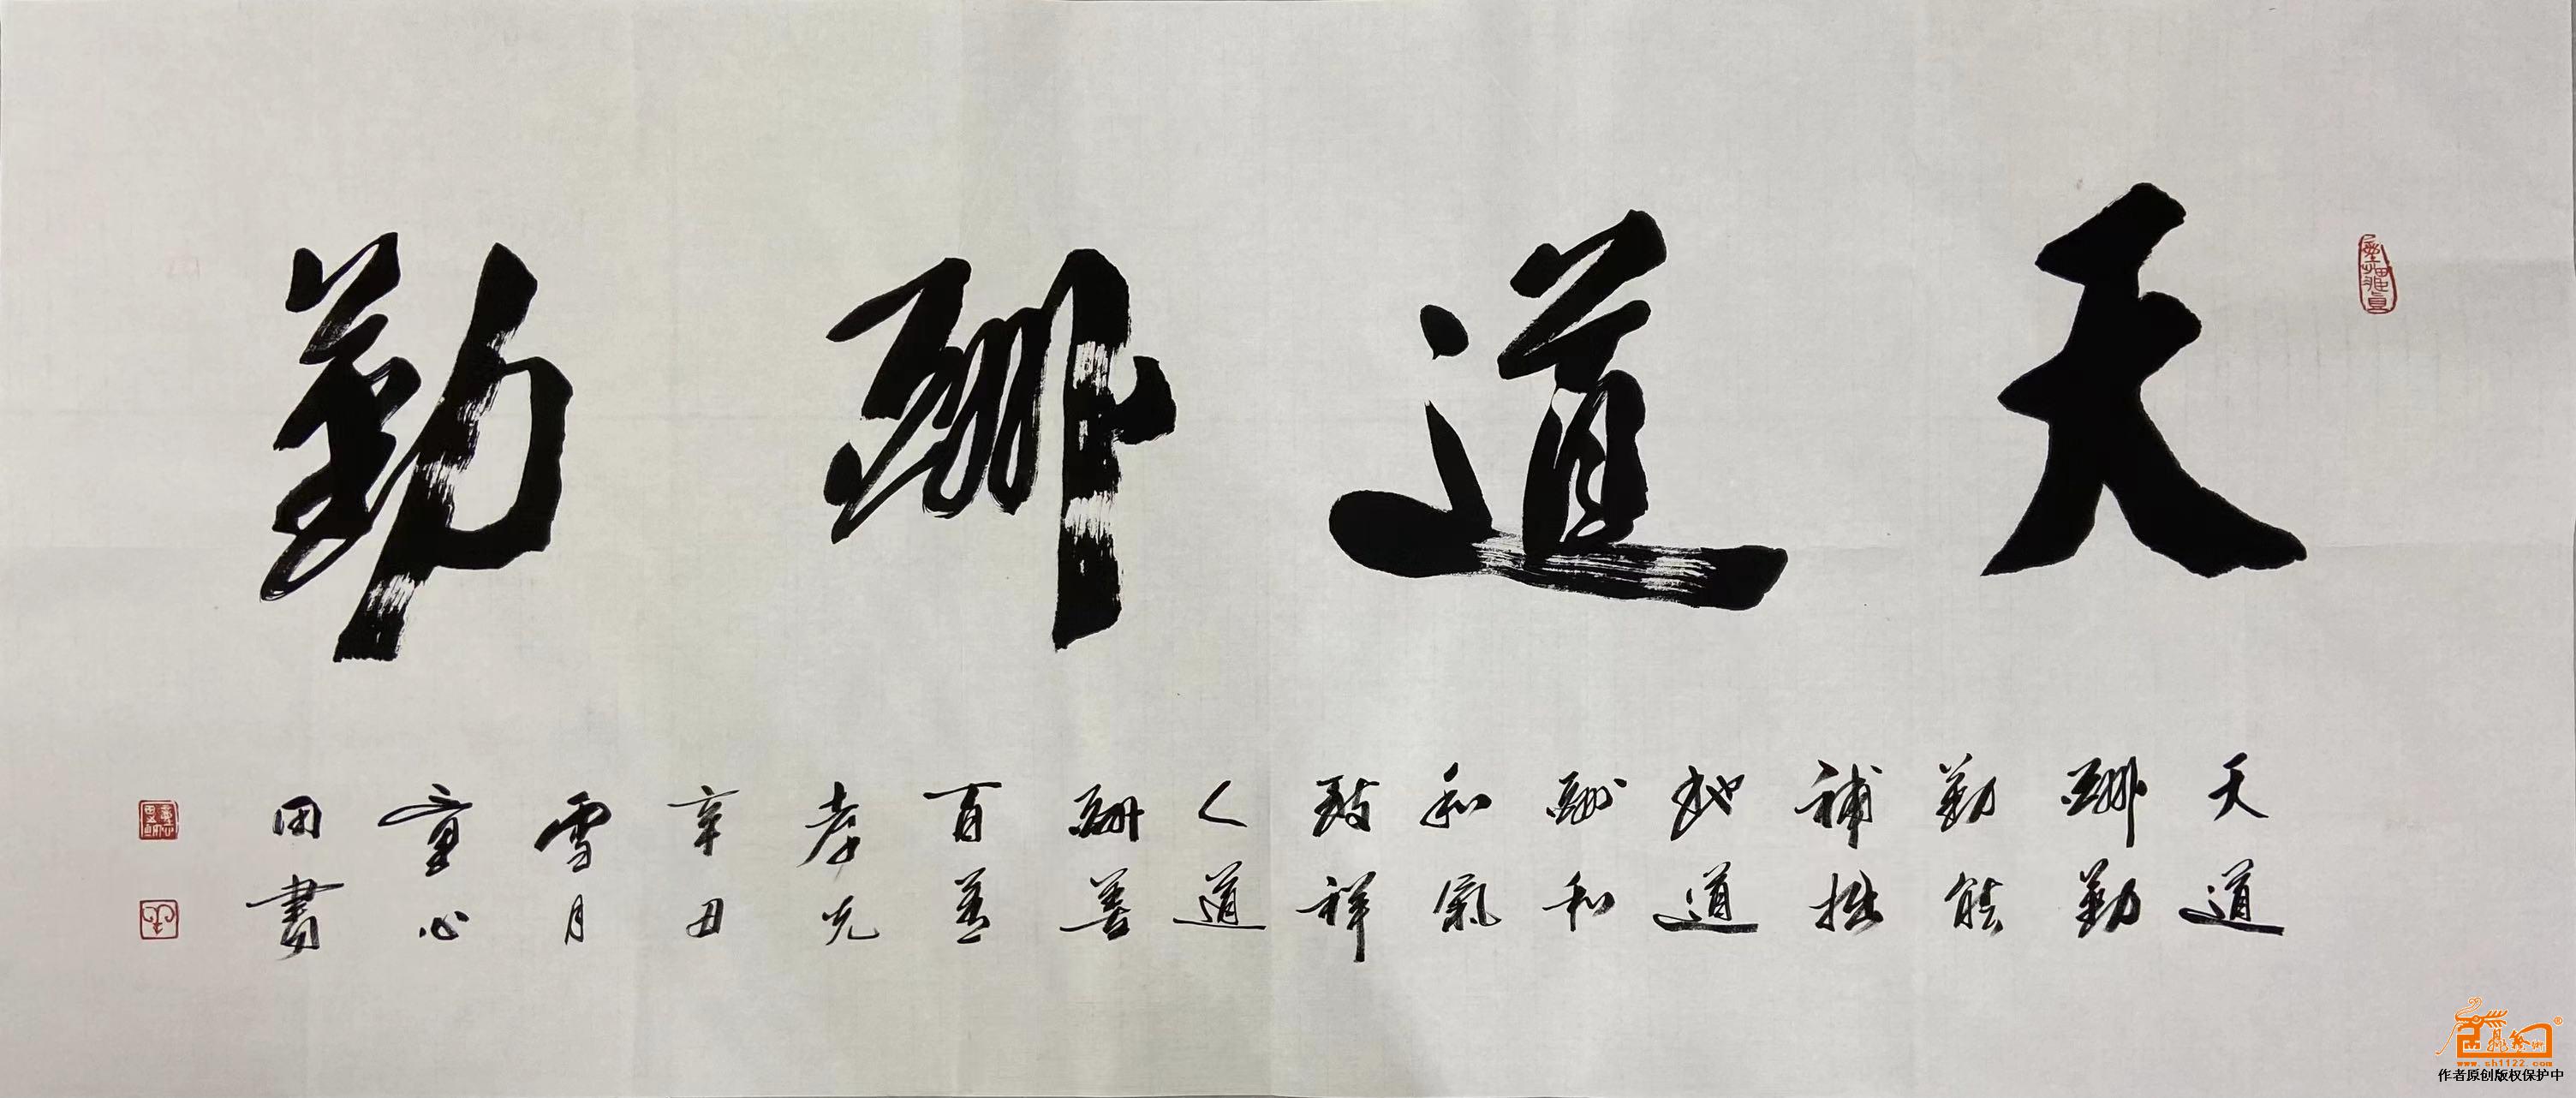 天道酬勤
天道
酬勤
勤能
補拙
地道
酬和
和氣
致祥
人道
酬善
百善
孝先
辛丑
雪月
童心
田書
www.sh1122.com
作者原创版权保护中